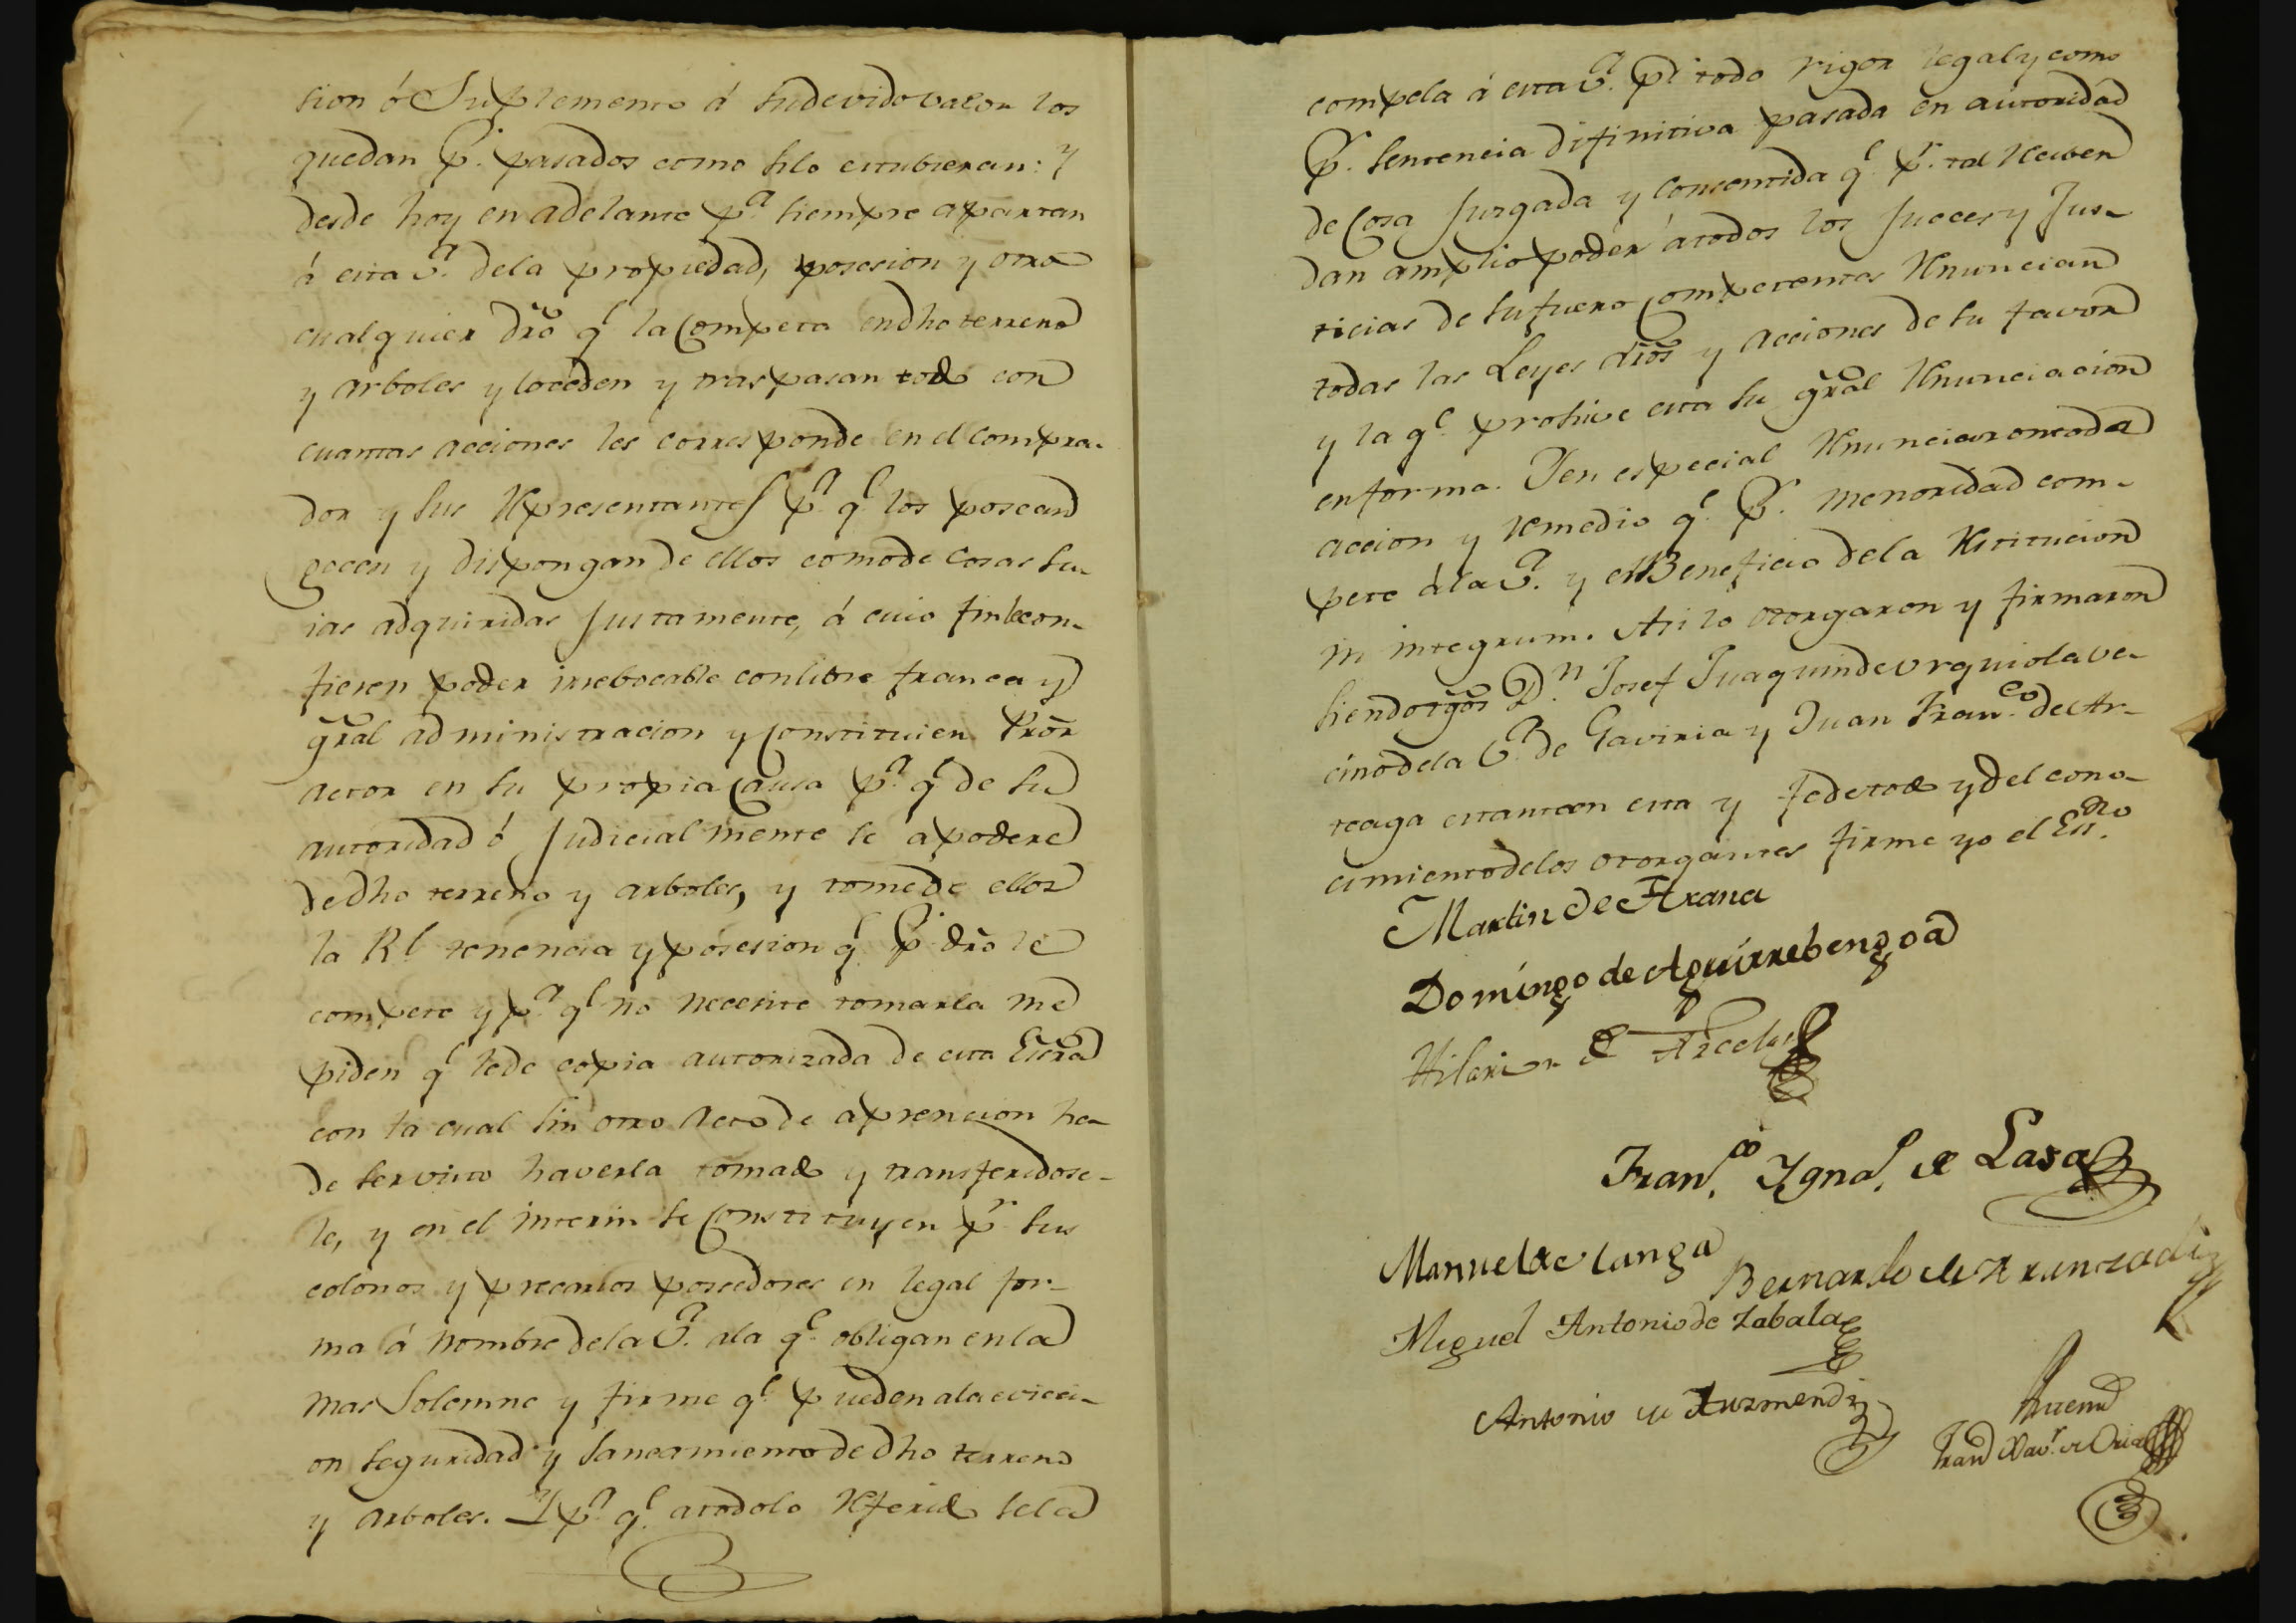 sion ó Suplemento á su devido valor los
quedan pr. pasados como silo estubieran: y
desde hoy en adelante pa. siempre apartan
á esta Va. dela propiedad, posesion y otro
cualquier dro qe la Competa en dho terreno
y arboles y lo ceden y traspasan todo con
cuantas acciones les corresponde en el compra-
dor y sus Representantes pa. qe los posean
gocen y dispongan de ellos como de cosas su-
ias adquiridas Justamente, á cuio fin le con-
fieren poder irrebocable con libre franca y
gral administracion y Constituien Pror
actor en su propia Causa pa. qe de su
autoridad ó Judicialmente se apodere
de dho terreno y arboles, y tome de ellos
la Rl tenencia y posesion qe pr. dro le
compete y pa. qe no necesite tomarla me
piden qe le de copia autorizada de esta Escra
con la cual sin otro acto de aprencion ha
de ser visto haverla tomado y transferidose-
le, y en el interin se Constituyen pr. sus
colonos y precarios poseedores en legal for-
ma á nombre dela Va. ala qe. obligan en la
mas Solemne y firme qe pueden ala evicci-
on seguridad y saneamiento de dho terreno
y arboles. Y pa. qe. a todo lo Referido se le
compela á esta Va. pr. todo rigor legal y como
pr. sentencia difinitiva pasada en autoridad
de Cosa Juzgada y Consentida qe. pr. tal Reciven
dan amplio poder á todos los Jueces y Jus-
ticias de su fuero Competentes Renuncian
todas las Leyes dros y acciones de su favor
y la qe. prohive esta su gral Renunciacion
en forma. Y en especial Renunciaron toda
accion y remedio qe. pr. menoridad com-
pete á la Va. y el Beneficio dela Restitucion
in integrum. Asi lo otorgaron y firmaron
siendo tgos Dn. Josef Juaquin de Urquiola ve-
cino dela Va. de Gaviria y Juan Franco. de Ar-
teaga estante en esta y fe de todo y del cono-
cimiento delos otorgantes firme yo el Essno.
Martin de Arana
Domingo de Aguirrebengoa
Hilarion de Arcelus
Franco. Ygno. de Lasa
Manuel de langa Bernardo de Aranzadi
Miguel Antonio de Zabala
Antonio de Auzmendi
Antemi
Fran Xavr. de Oria